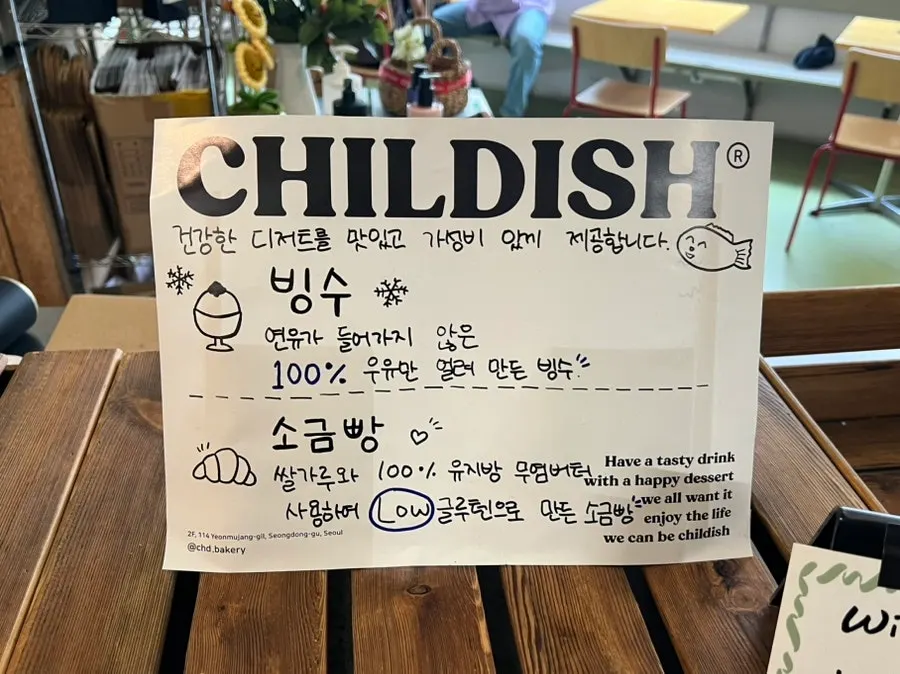 CHILDISH®
건강한 디저트를 맛있고 가성비 있게 제공합니다.
빙수
연유가 들어가지 않은
100% 우유만 얼려 만든 빙수
소금빵
쌀가루와 100% 유지방 무염버터
사용하여 Low 글루텐으로 만든 소금빵
Have a tasty drink
with a happy dessert
we all want it
enjoy the life
we can be childish
2F, 114 Yeonmujang-gil, Seongdong-gu, Seoul
@chd.bakery
Wi